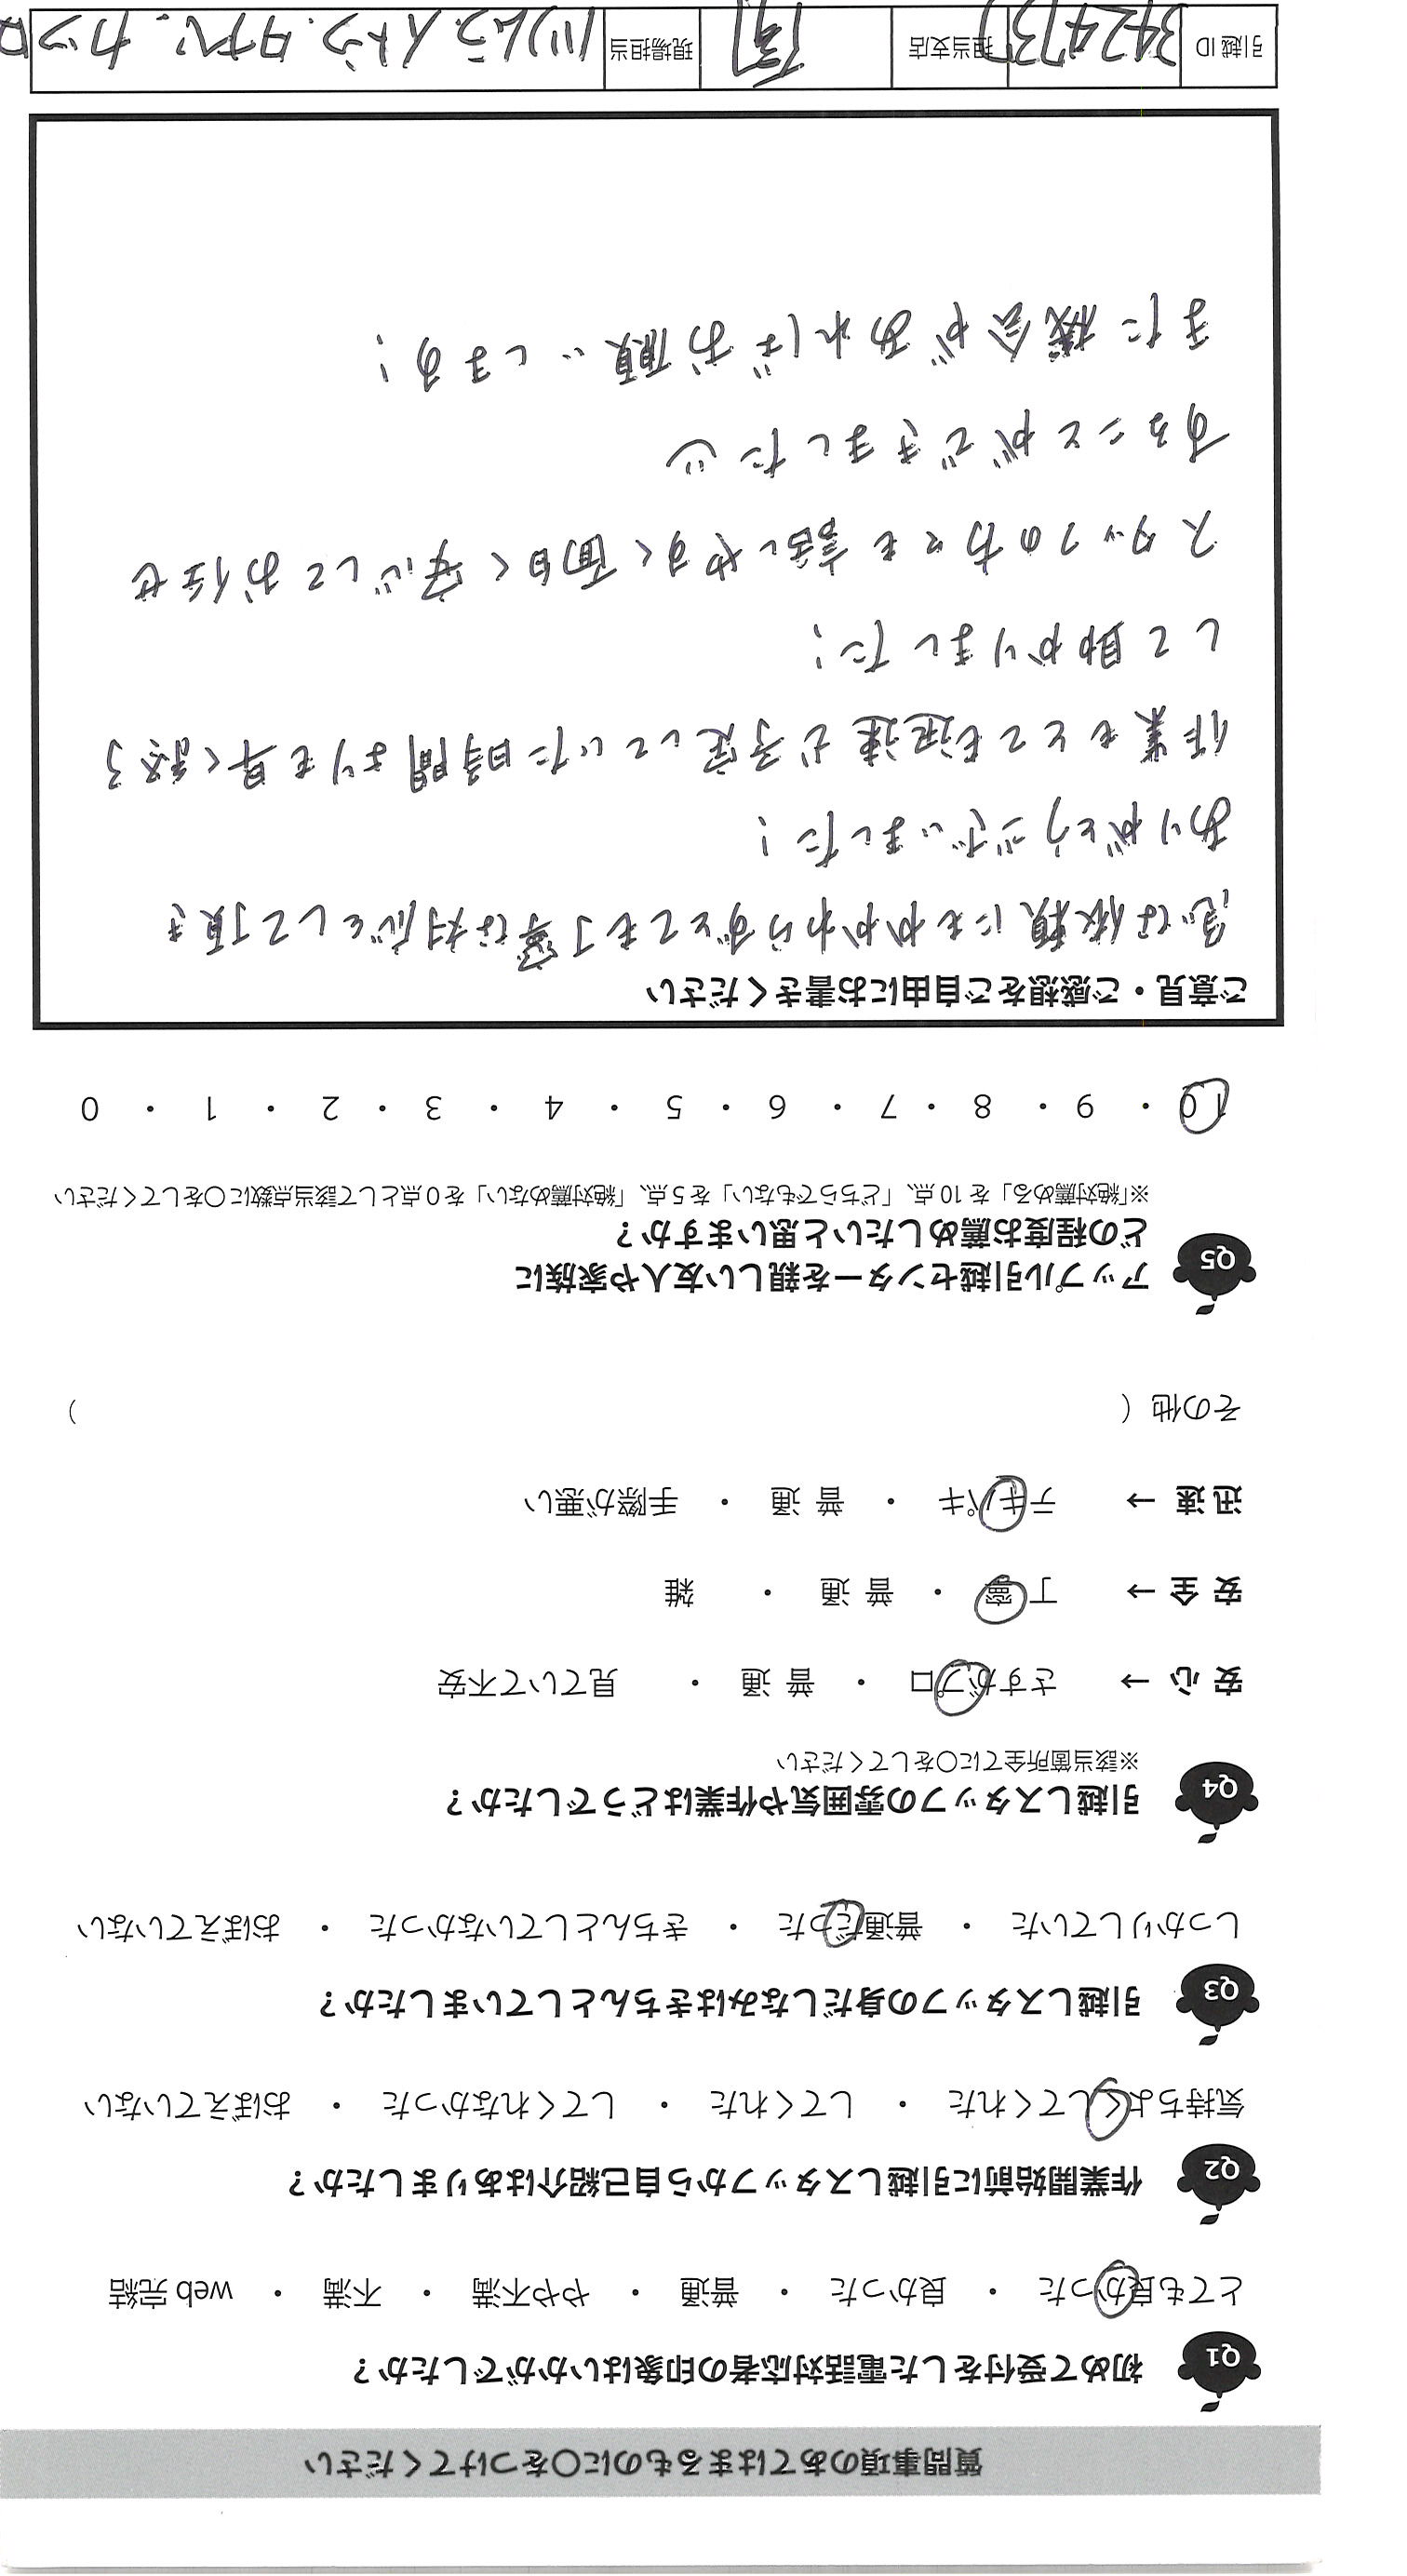 質問事項のあてはまるものに〇をつけてください
Q1 初めて受付をした電話対応者の印象はいかがでしたか？
とても良かった ・ 良かった ・ 普通 ・ やや不満 ・ 不満 ・ web 完結
Q2 作業開始前に引越しスタッフから自己紹介はありましたか？
気持ちよくしてくれた ・ してくれた ・ してくれなかった ・ おぼえていない
Q3 引越しスタッフの身だしなみはきちんとしていましたか？
しっかりしていた ・ 普通だった ・ きちんとしていなかった ・ おぼえていない
Q4 引越しスタッフの雰囲気や作業はどうでしたか？
※該当箇所全てに〇をしてください
安 心 → さすがプロ ・ 普 通 ・ 見ていて不安
安 全 → 丁 寧 ・ 普 通 ・ 雑
迅 速 → テキパキ ・ 普 通 ・ 手際が悪い
その他（ ）
Q5 アップル引越センターを親しい友人や家族に
どの程度お薦めしたいと思いますか？
※「絶対薦める」を 10 点、「どちらでもない」を 5 点、「絶対薦めない」を 0 点として該当点数に〇をしてください
10 ・ 9 ・ 8 ・ 7 ・ 6 ・ 5 ・ 4 ・ 3 ・ 2 ・ 1 ・ 0
ご意見・ご感想をご自由にお書きください
急な依頼にもかかわらずとても丁寧な対応をして頂き
ありがとうございました！
作業もとても迅速で予定していた時間よりも早く終了
して助かりました！
スタッフの方々も話しやすく面白く安心してお任せ
することができました
また機会があればお願いします！
引越 ID 342473 担当支店 現場担当 ハツムラ.イトウ.タナベ.カツロ